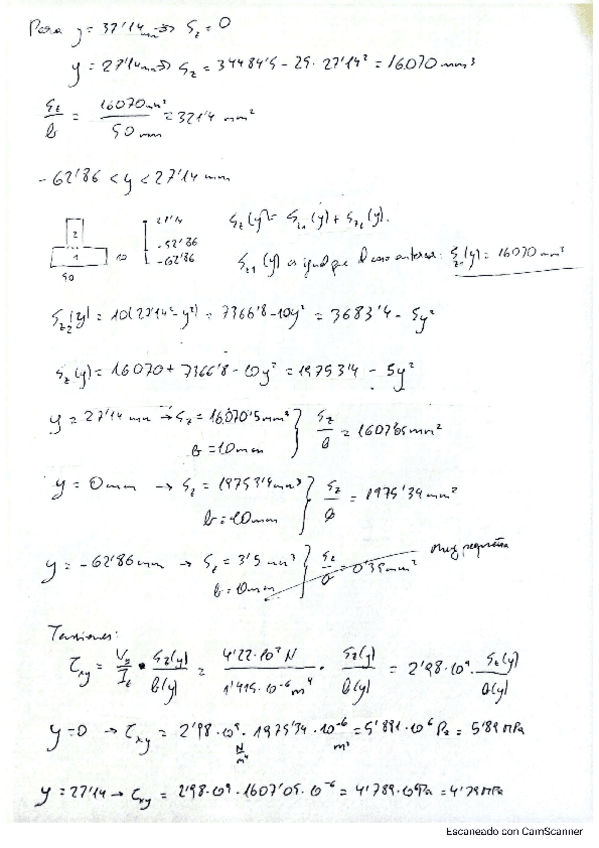 Para y = 37'14 mm => Sz = 0
y = 27'14 mm => Sz = 34484'5 - 25 · 27'14² = 16070 mm³
Sz/b = 16070 mm³/50 mm = 321'4 mm²
-62'86 < y < 27'14 mm
27'14
-52'86
-62'86
2
1
10
50
Sz(y) = Sz1(y) + Sz2(y).
Sz1(y) es igual que el caso anterior: Sz1(y) = 16070 mm³
Sz2(y) = 10(27'14² - y²) = 7366'8 - 10y² = 3683'4 - 5y²
Sz(y) = 16070 + 7366'8 - 10y² = 19753'4 - 5y²
y = 27'14 mm → Sz = 16070'5 mm³
b = 10mm
Sz/b = 1607'05 mm²
y = 0mm → Sz = 19753'4 mm³
b = 10mm
Sz/b = 1975'34 mm²
y = -62'86 mm → Sz = 3'5 mm³
b = 10mm
Sz/b = 0'35 mm²
muy pequeña
Tensiones:
τxy = Vy/Iz · Sz(y)/b(y) = 4'22·10³ N/1'415·10⁻⁶ m⁴ · Sz(y)/b(y) = 2'98·10⁹ · Sz(y)/b(y)
y = 0 → τxy = 2'98·10⁹ · 1975'34 · 10⁻⁶ = 5'891·10⁶ Pa = 5'89 MPa
N/m⁴
m²
y = 27'14 → τxy = 2'98·10⁹ · 1607'05 · 10⁻⁶ = 4'789·10⁶ Pa = 4'79 MPa
Escaneado con CamScanner